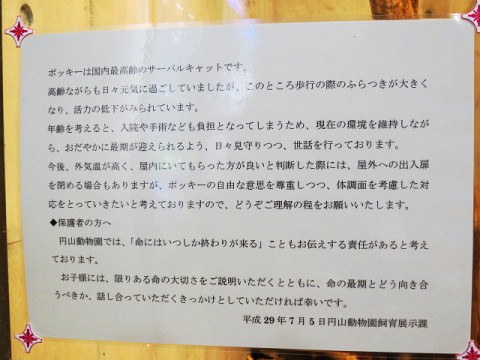 ポッキーは国内最高齢のサーバルキャットです。
高齢ながらも日々元気に過ごしていましたが、このところ歩行の際のふらつきが大きく
なり、活力の低下がみられています。
年齢を考えると、入院や手術なども負担となってしまうため、現在の環境を維持しなが
ら、おだやかに最期が迎えられるよう、日々見守りつつ、世話を行っております。
今後、外気温が高く、屋内にいてもらった方が良いと判断した際には、屋外への出入扉
を閉める場合もありますが、ポッキーの自由な意思を尊重しつつ、体調面を考慮した対
応をとっていきたいと考えておりますので、どうぞご理解の程をお願いいたします。
◆保護者の方へ
円山動物園では、「命にはいつしか終わりが来る」こともお伝えする責任があると考え
ております。
お子様には、限りある命の大切さをご説明いただくとともに、命の最期とどう向き合
うべきか、話し合っていただくきっかけとしていただければ幸いです。
平成 29 年 7 月 5 日円山動物園飼育展示課